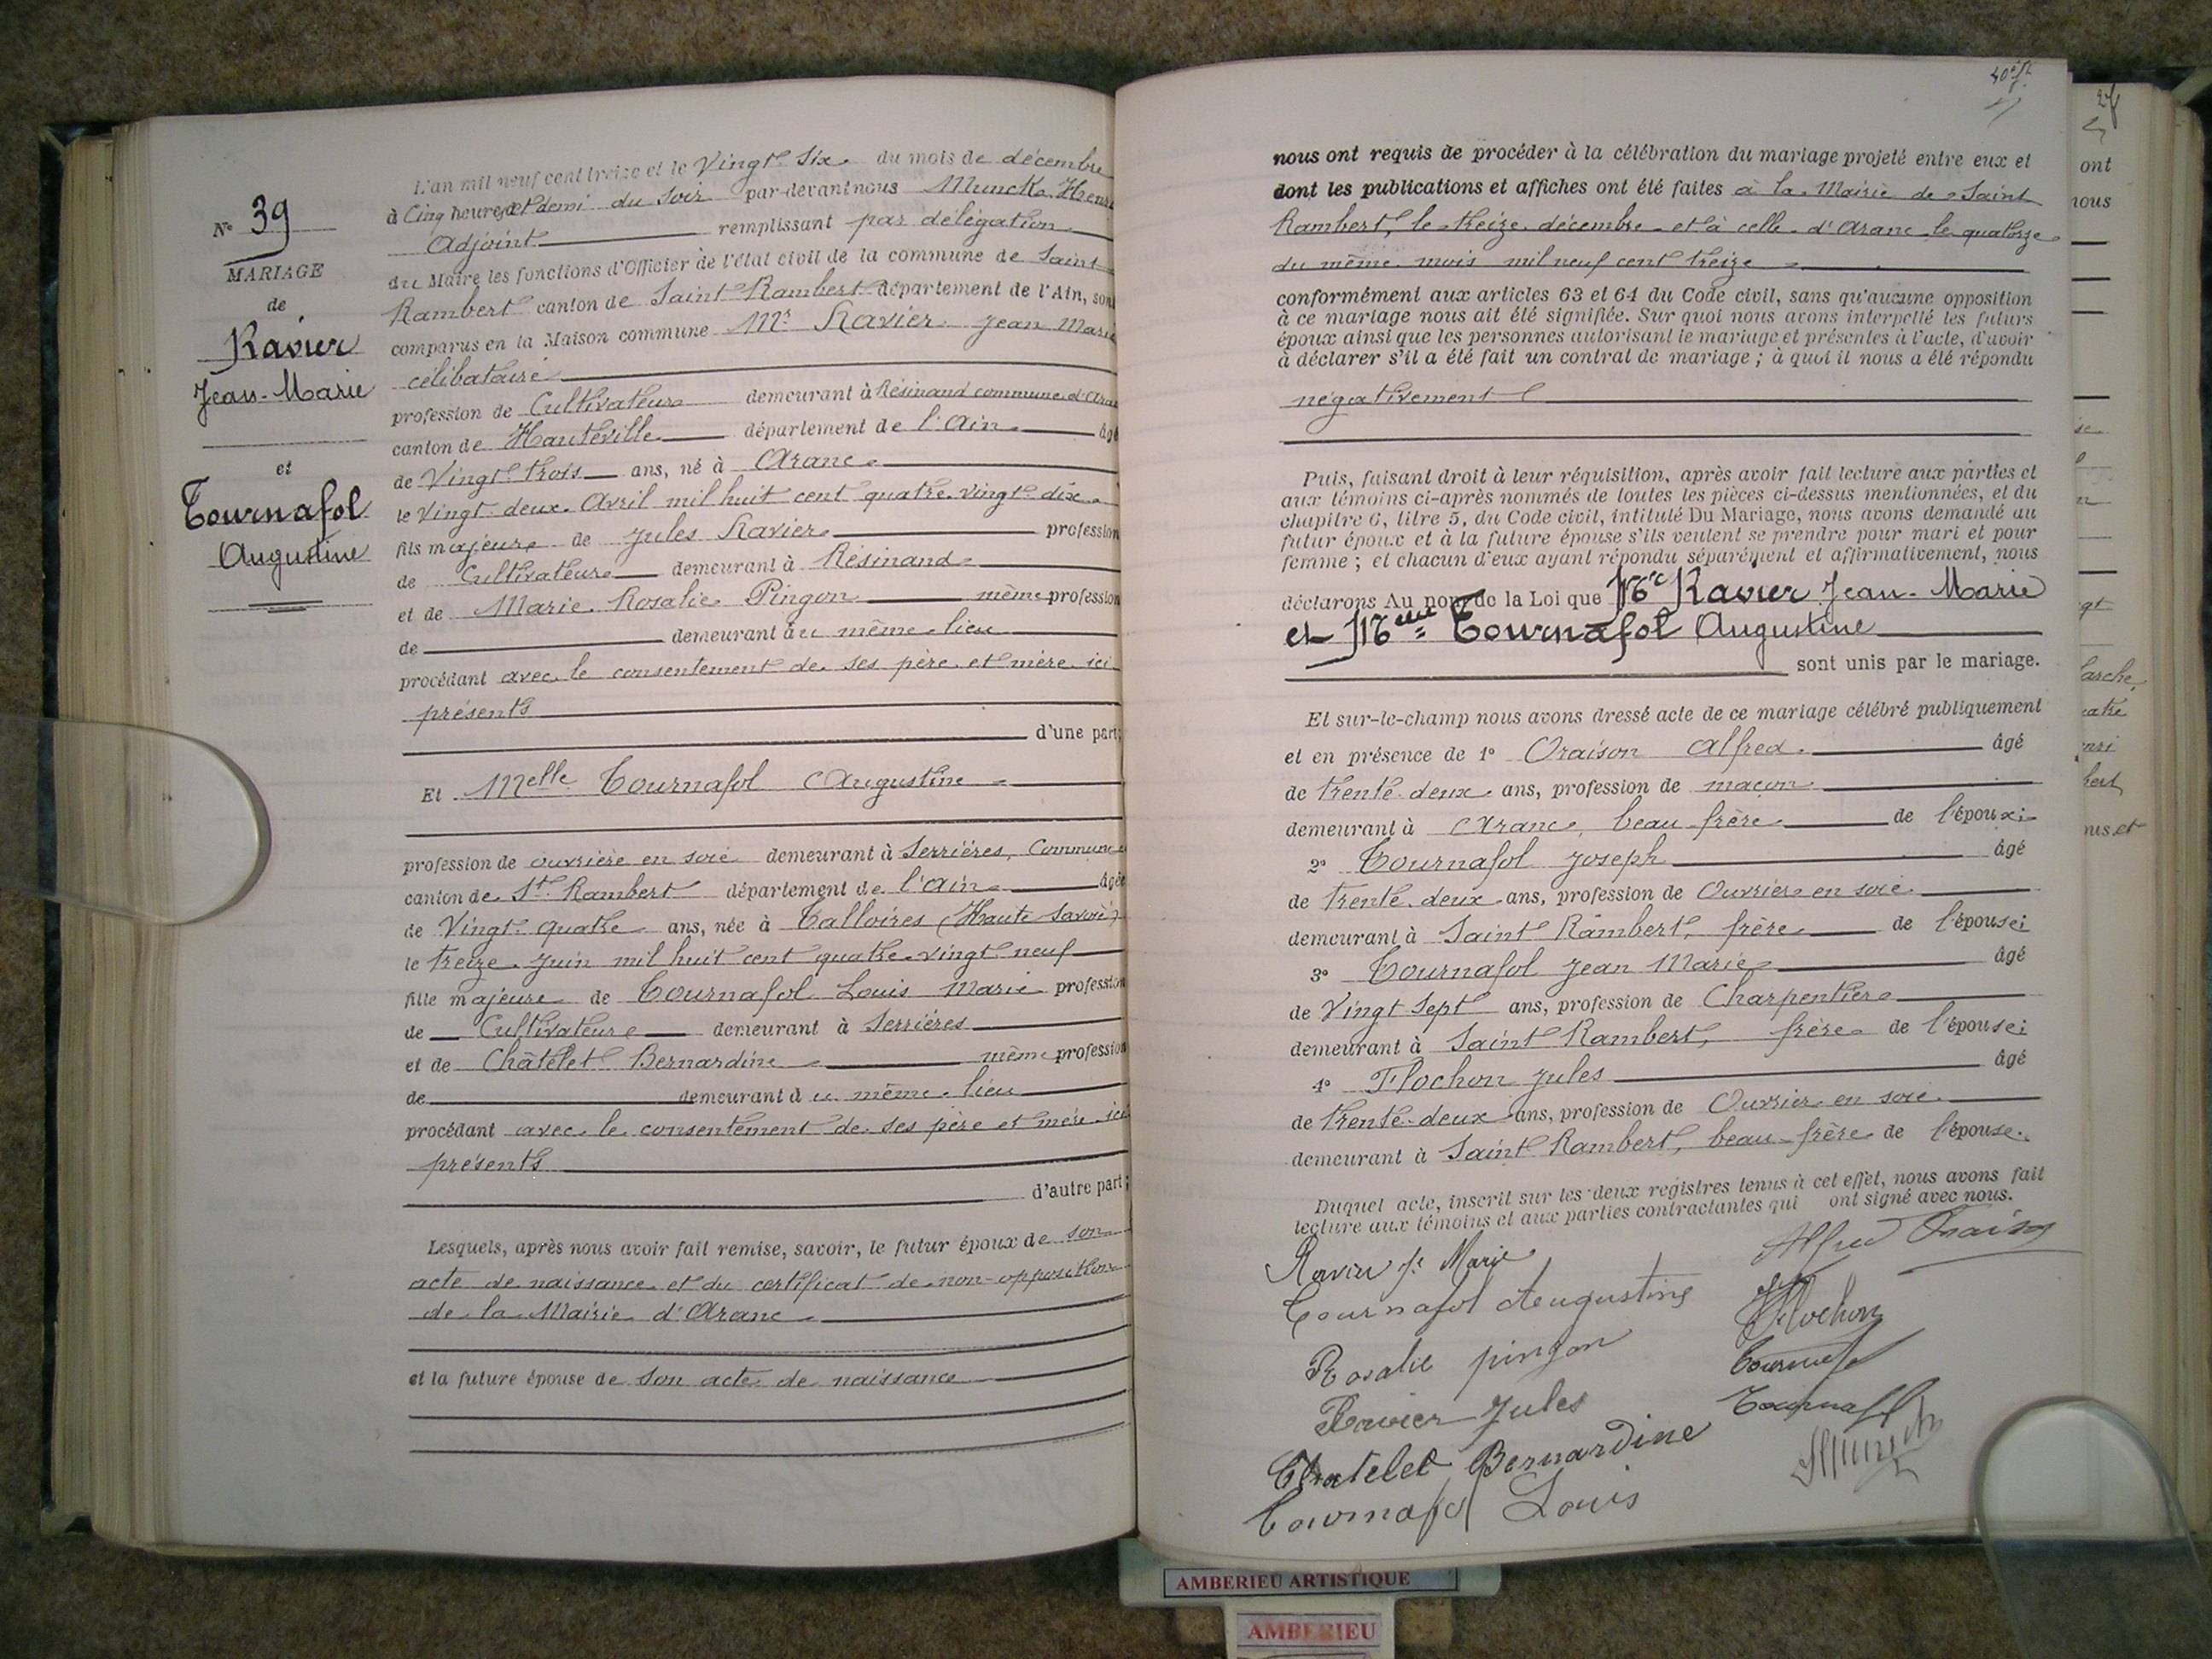 Nº 39
MARIAGE
de
Ravier
Jean-Marie
et
Tournafol
Augustine
L'an mil neuf cent treize et le Vingt-Six du mois de décembre
à Cinq heures et demi du soir par-devant nous Munck Henri
Adjoint remplissant par délégation
du Maire les fonctions d'Officier de l'état civil de la commune de Saint
Rambert canton de Saint Rambert département de l'Ain, sont
comparus en la Maison commune Mr Ravier Jean Marie
célibataire
profession de Cultivateur demeurant à Résinand commune d'Aranc
canton de Hauteville département de l'Ain âgé
de Vingt trois ans, né à Aranc
le Vingt deux Avril mil huit cent quatre vingt dix
fils majeur de Jules Ravier profession
de Cultivateur demeurant à Résinand
et de Marie Rosalie Pingon même profession
de demeurant au même lieu
procédant avec le consentement de ses père et mère ici
présents
d'une part;
Et Melle Tournafol Augustine
profession de ouvrière en soie demeurant à Serrières, Commune
canton de St Rambert département de l'Ain âgée
de Vingt quatre ans, née à Talloires (Haute Savoie)
le treize Juin mil huit cent quatre-vingt neuf
fille majeure de Tournafol Louis Marie profession
de Cultivateur demeurant à Serrières
et de Châtelet Bernardine même profession
de demeurant au même lieu
procédant avec le consentement de ses père et mère ici
présents
d'autre part;
Lesquels, après nous avoir fait remise, savoir, le futur époux de son
acte de naissance et du certificat de non-opposition
de la Mairie d'Aranc
et la future épouse de son acte de naissance
nous ont requis de procéder à la célébration du mariage projeté entre eux et
dont les publications et affiches ont été faites à la Mairie de Saint
Rambert, le treize décembre et à celle d'Aranc le quatorze
du même mois mil neuf cent treize
conformément aux articles 63 et 64 du Code civil, sans qu'aucune opposition
à ce mariage nous ait été signifiée. Sur quoi nous avons interpellé les futurs
époux ainsi que les personnes autorisant le mariage et présentes à l'acte, d'avoir
à déclarer s'il a été fait un contrat de mariage ; à quoi il nous a été répondu
négativement
Puis, faisant droit à leur réquisition, après avoir fait lecture aux parties et
aux témoins ci-après nommés de toutes les pièces ci-dessus mentionnées, et du
chapitre 6, titre 5, du Code civil, intitulé Du Mariage, nous avons demandé au
futur époux et à la future épouse s'ils veulent se prendre pour mari et pour
femme ; et chacun d'eux ayant répondu séparément et affirmativement, nous
déclarons Au nom de la Loi que Mr Ravier Jean-Marie
et Melle Tournafol Augustine
sont unis par le mariage.
Et sur-le-champ nous avons dressé acte de ce mariage célébré publiquement
et en présence de 1º Oraison Alfred âgé
de trente-deux ans, profession de maçon
demeurant à Aranc, beau frère de l'époux;
2º Tournafol Joseph âgé
de trente-deux ans, profession de Ouvrier en soie
demeurant à Saint Rambert, frère de l'épouse;
3º Tournafol Jean Marie âgé
de Vingt Sept ans, profession de Charpentier
demeurant à Saint Rambert, frère de l'épouse;
4º Flochon Jules âgé
de trente-deux ans, profession de Ouvrier en soie
demeurant à Saint Rambert, beau-frère de l'épouse.
Duquel acte, inscrit sur les deux registres tenus à cet effet, nous avons fait
lecture aux témoins et aux parties contractantes qui ont signé avec nous.
Ravier Jn Marie
Alfred Oraison
Tournafol Augustine
Flochon
Rosalie pingon
Ravier Jules
Tournafol
Chatelet Bernardine
Munck
Tournafol Louis
AMBERIEU ARTISTIQUE
AMBERIEU